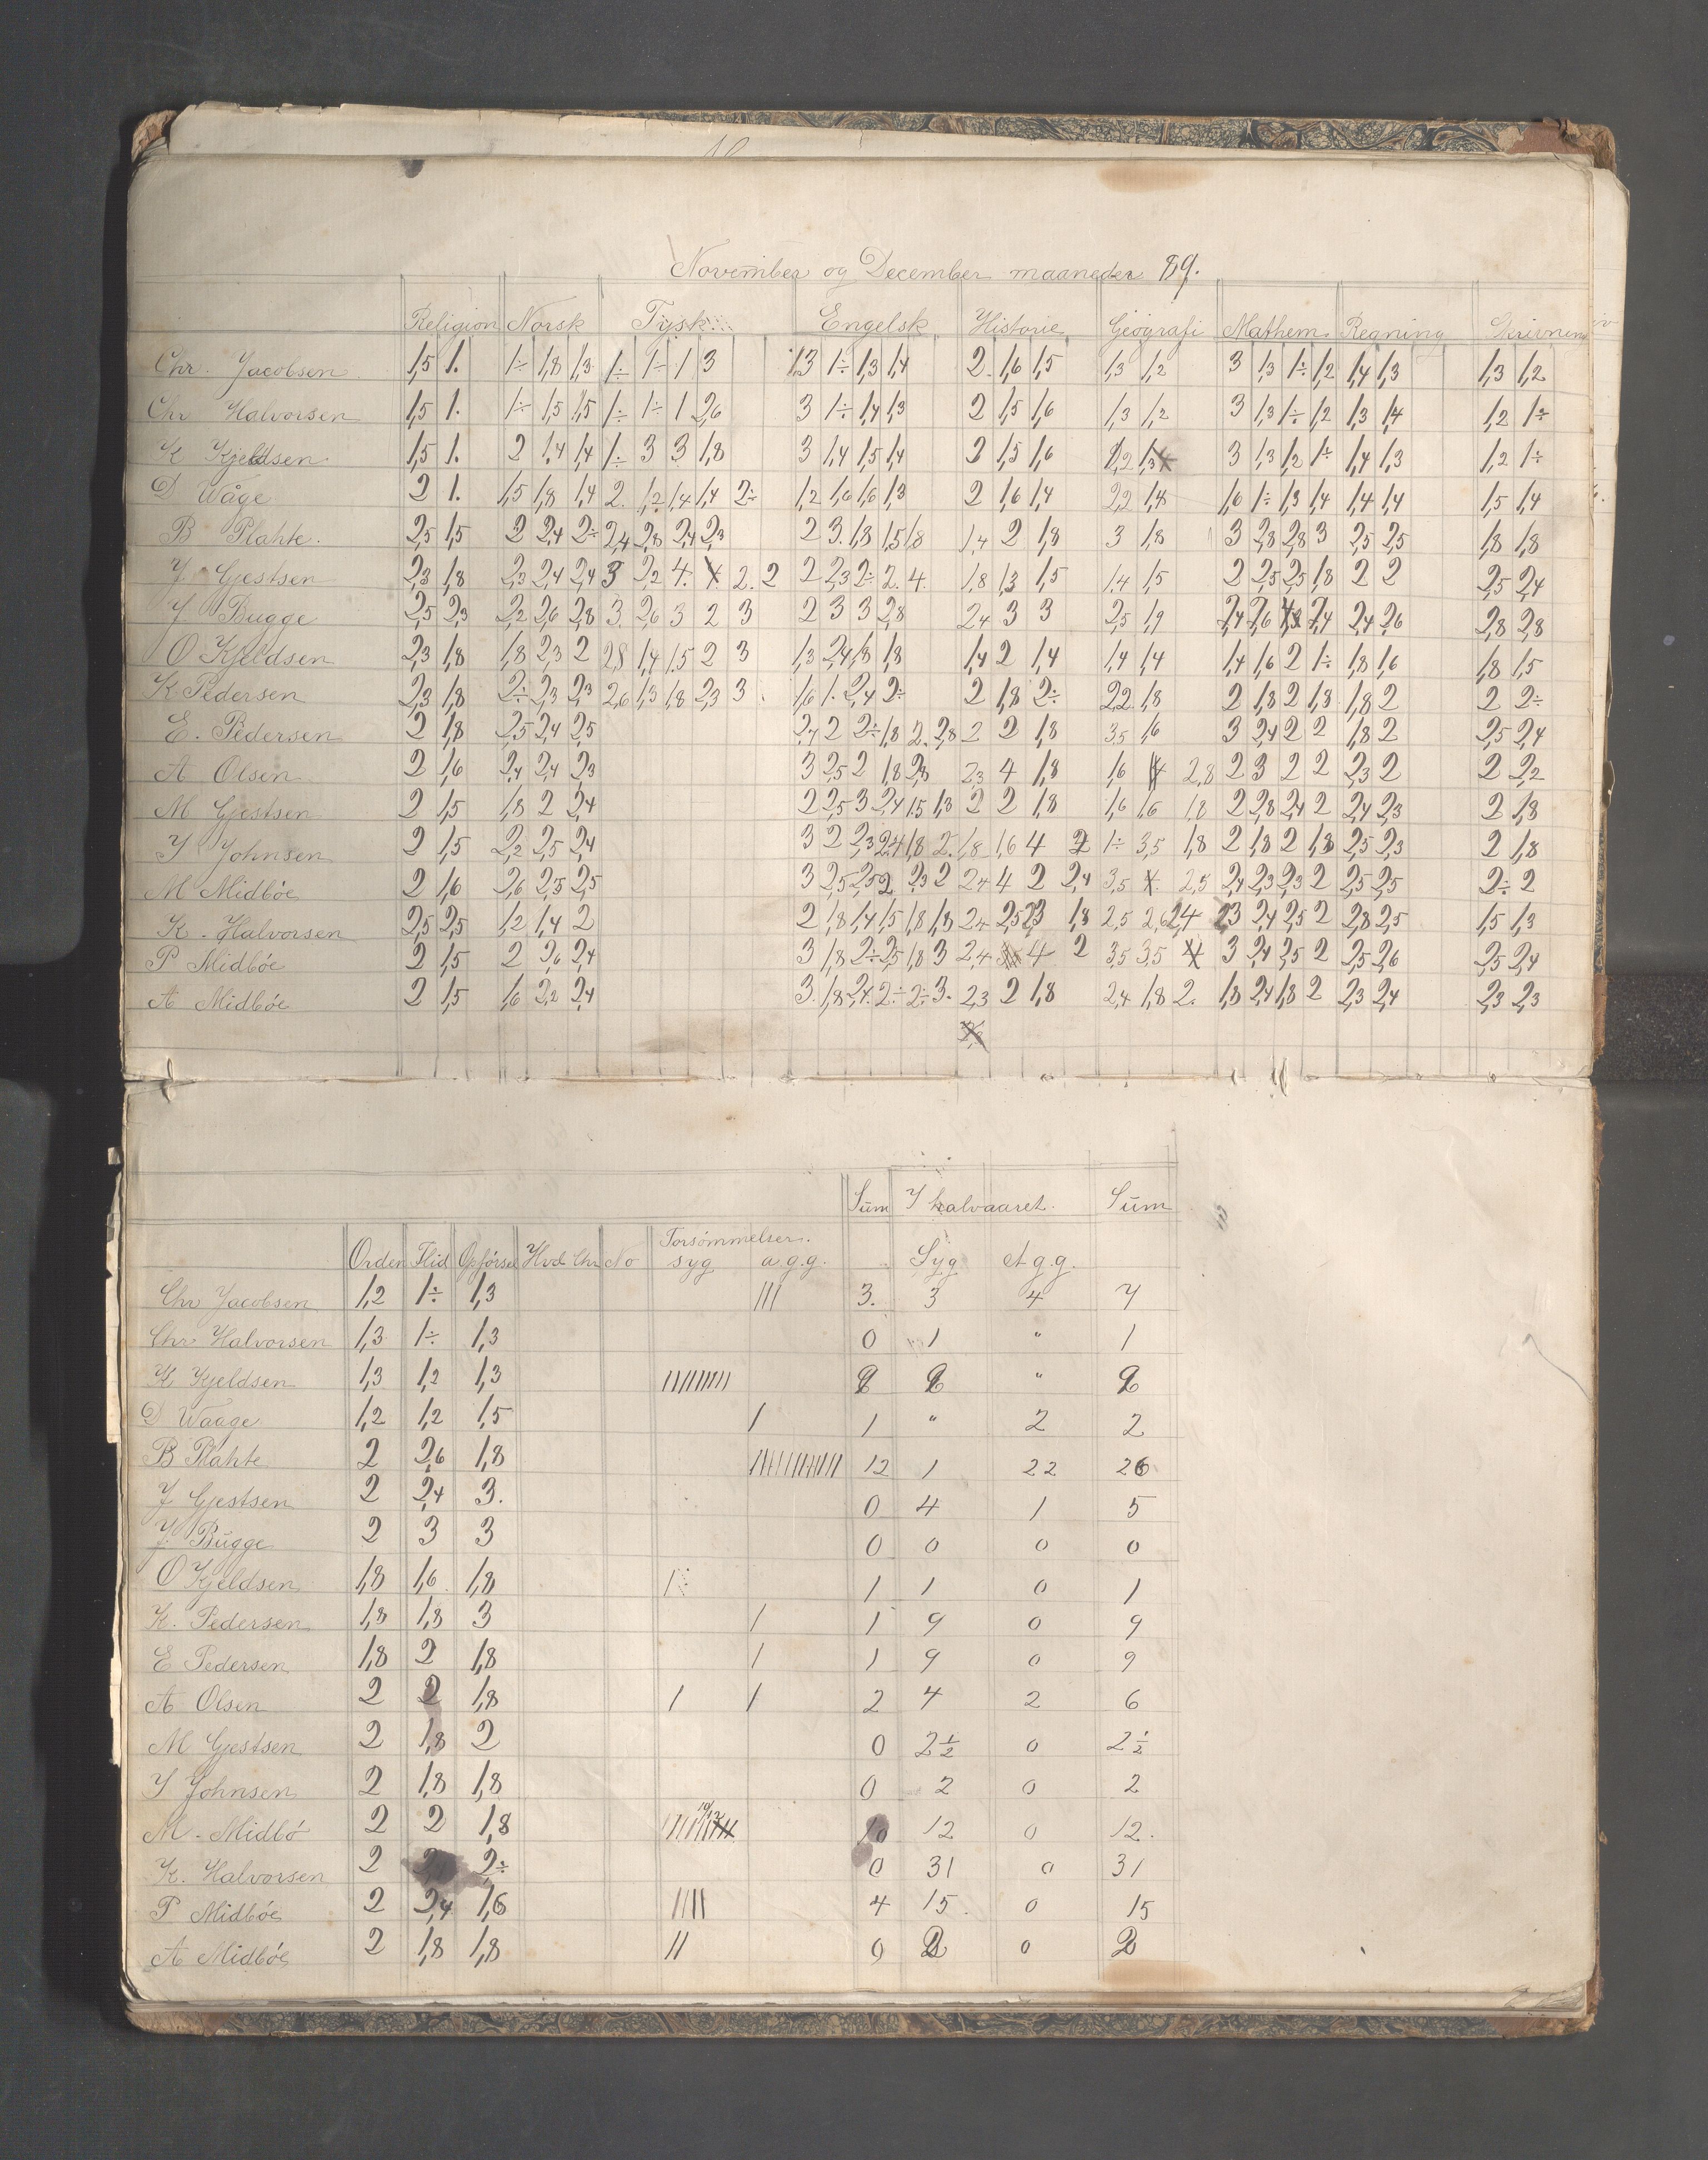 November og December maaneder 89.
Religion Norsk Tysk Engelsk Historie Geografi Mathem. Regning Skrivning
Chr. Jacobsen 1,5 1. 1÷ 1,8 1,3 1÷ 1÷ 1 3 1,3 1÷ 1,3 1,4 2. 1,6 1,5 1,3 1,2 3 1,3 1÷ 1,2 1,4 1,3 1,3 1,2
Chr Halvorsen 1,5 1. 1÷ 1,5 1,5 1÷ 1÷ 1 2,6 3 1÷ 1,4 1,3 2 1,5 1,6 1,3 1,2 3 1,3 1÷ 1,2 1,3 1,4 1,2 1÷
K Kjeldsen 1,5 1. 2 1,4 1,4 1÷ 3 3 1,8 3 1,4 1,5 1,4 2 1,5 1,6 1,2 1,3 3 1,3 1,2 1÷ 1,4 1,3 1,2 1÷
D Wåge 2 1. 1,5 1,8 1,4 2. 1,2 1,4 1,4 2÷ 1,2 1,6 1,6 1,3 2 1,6 1,4 2,2 1,8 1,6 1÷ 1,3 1,4 1,4 1,4 1,5 1,4
B Plahte. 2,5 1,5 2 2,4 2÷ 2,4 2,8 2,4 2,3 2 3. 1,8 1,5 1,8 1,4 2 1,8 3 1,8 3 2,8 2,8 3 2,5 2,5 1,8 1,8
J Gjestsen 2,3 1,8 2,3 2,4 2,4 3 2,2 4. 2. 2 2 2,3 2÷ 2. 4. 1,8 1,3 1,5 1,4 1,5 2 2,5 2,5 1,8 2 2 2,5 2,4
J Bugge 2,5 2,3 2,2 2,6 2,8 3. 2,6 3 2 3 2 3 3 2,8 2,4 3 3 2,5 1,9 2,4 2,6 2,4 2,4 2,6 2,8 2,8
O Kjeldsen 2,3 1,8 1,8 2,3 2 2,8 1,4 1,5 2 3 1,3 2,4 1,8 1,8 1,4 2 1,4 1,4 1,4 1,4 1,6 2 1÷ 1,8 1,6 1,8 1,5
K Pedersen 2,3 1,8 2÷ 2,3 2,3 2,6 1,3 1,8 2,3 3 1,6 1. 2,4 2÷ 2 1,8 2÷ 2,2 1,8 2 1,8 2 1,8 1,8 2 2 2÷
E. Pedersen 2 1,8 2,5 2,4 2,5 2,7 2 2÷ 1,8 2. 2,8 2 2 1,8 3,5 1,6 3 2,4 2 2 1,8 2 2,5 2,4
A Olsen 2 1,6 2,4 2,4 2,3 3 2,5 2 1,8 2,3 2,3 4 1,8 1,6 2,8 2 3 2 2 2,3 2 2 2,2
M Gjestsen 2 1,5 1,8 2 2,4 2 2,5 3 2,4 1,5 1,3 2 2 1,8 1,6 1,6 1,8 2 2,8 2,4 2 2,4 2,3 2 1,8
J Johnsen 2 1,5 2,2 2,5 2,4 3 2 2,3 2,4 1,8 2. 1,8 1,6 4 2 1÷ 3,5 1,8 2 1,8 2 1,8 2,5 2,3 2 1,8
M Midböe 2 1,6 2,6 2,5 2,5 3 2,5 2,5 2 2,3 2 2,4 4 2 2,4 3,5 2,5 2,4 2,3 2,3 2 2,5 2,5 2÷ 2
K. Halvorsen 2,5 2,5 1,2 1,4 2 2 1,8 1,4 1,5 1,8 1,8 2,4 2,5 2,3 1,8 2,5 2,6 2,4 2,3 2,4 2,5 2 2,8 2,5 1,5 1,3
P Midböe 2 1,5 2 2,6 2,4 3 1,8 2÷ 2,5 1,8 3 2,4 4 2 3,5 3,5 3 2,4 2,5 2 2,5 2,6 2,5 2,4
A Midböe 2 1,5 1,6 2,2 2,4 3. 1,8 2,4. 2÷ 2÷ 3. 2,3 2 1,8 2,4 1,8 2. 1,8 2,4 1,8 2 2,3 2,4 2,3 2,3
Sum I halvaaret. Sum
Orden Flid Opförsel Hvd Chr No Forsömmelser. syg a.g.g. Syg A g.g.
Chr Jacobsen 1,2 1÷ 1,3 ||| 3. 3 4 7
Chr Halvorsen 1,3 1÷ 1,3 0 1 " 1
K Kjeldsen 1,3 1,2 1,3 ||||||||| "
D Waage 1,2 1,2 1,5 | 1 " 2 2
B Plahte 2 2,6 1,8 |||||||||||| 12 1 22 26
J Gjestsen 2 2,4 3. 0 4 1 5
J. Bugge 2 3 3 0 0 0 0
O Kjeldsen 1,8 1,6 1,8 | 1 1 0 1
K. Pedersen 1,8 1,8 3 | 1 9 0 9
E Pedersen 1,8 2 1,8 | 1 9 0 9
A Olsen 2 2 1,8 | | 2 4 2 6
M Gjestsen 2 1,8 2 0 2½ 0 2½
J Johnsen 2 1,8 1,8 0 2 0 2
M. Midbö 2 2 1,8 10/12 10 12 0 12.
K. Halvorsen 2 2÷ 0 31 0 31
P Midböe 2 2,4 1,6 |||| 4 15. 0 15
A Midböe 2 1,8 1,8 || 0 2 0 2